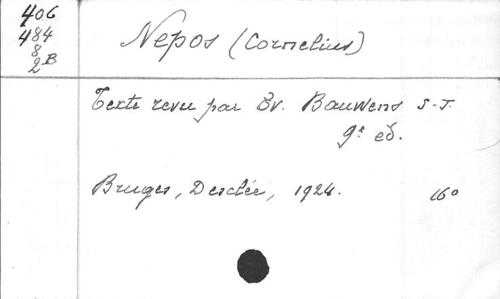 406
484
8
2 B
Nepos (Cornelius)
Texte revu par Ev. Bauwens S.J.
9e éd.
Bruges, Desclée, 1924. 16°